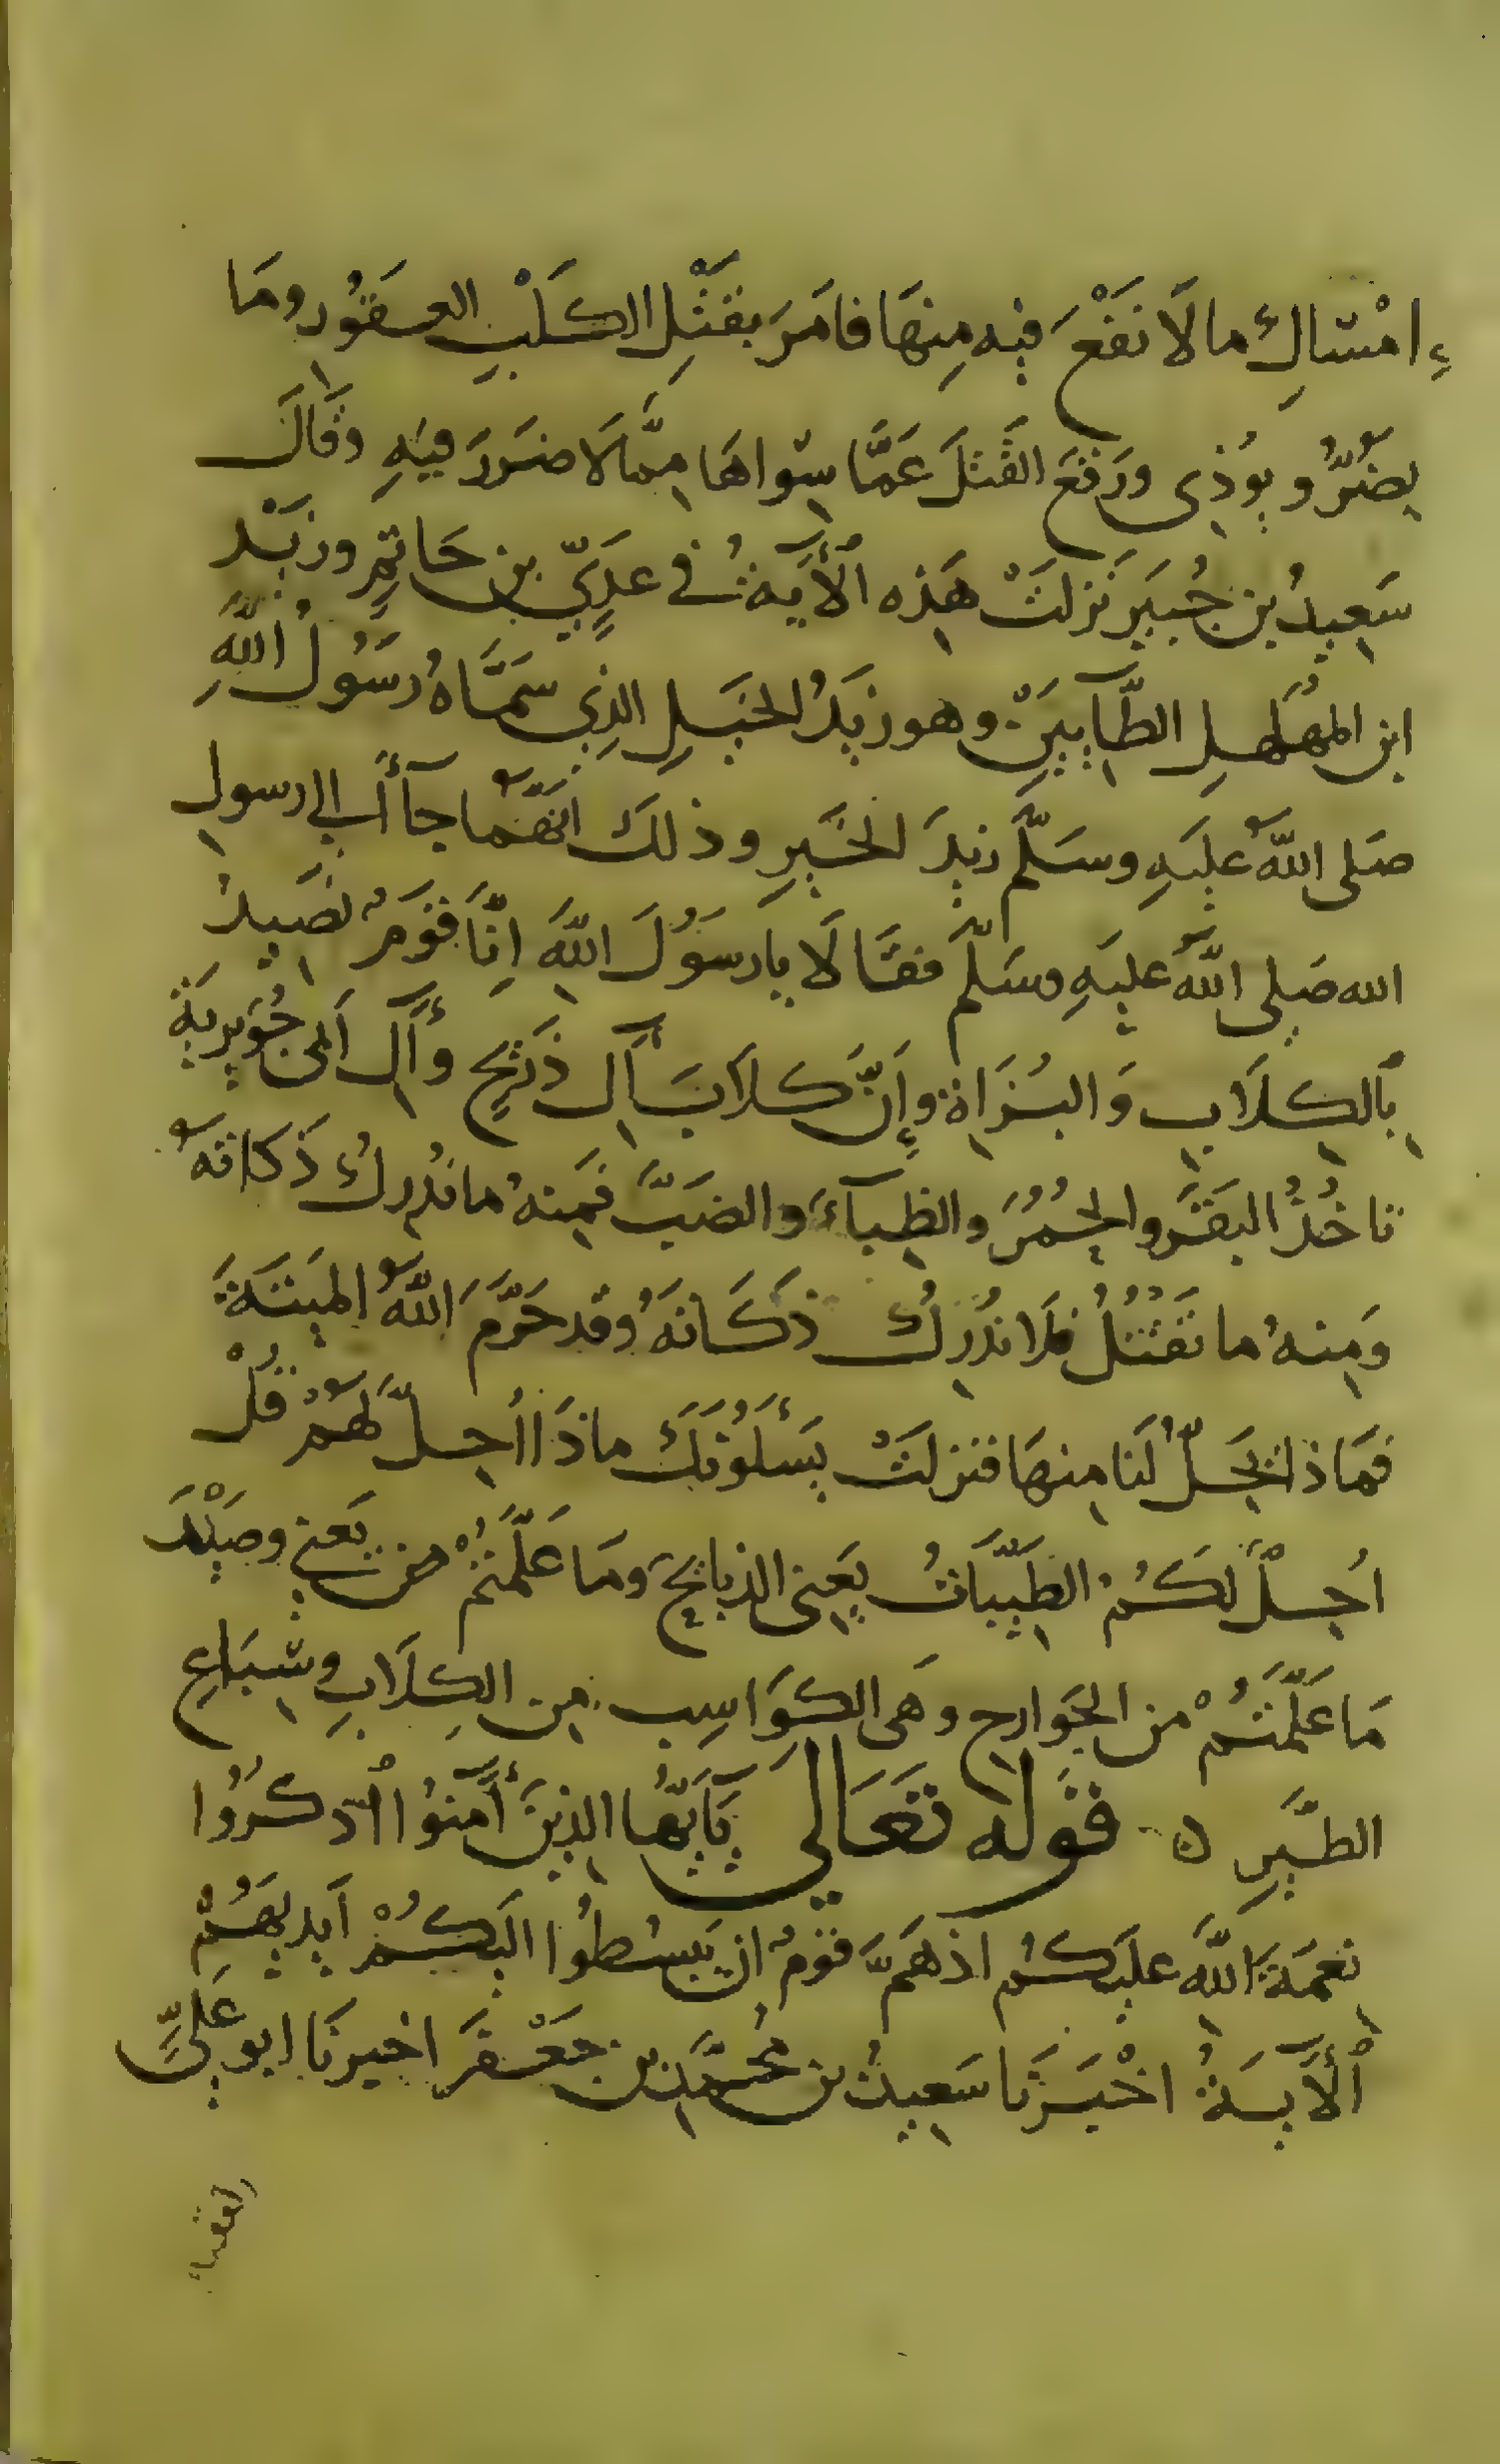 إمْسَاكِ ما لَا نَفْعَ فيه مِنهَا فامَرَ بقَتْلِ الكَلْبِ العَقُورِ ومَا
يضُرُّ ويُؤذِى ورَفَعَ القَتْلَ عَمَّا سِواهَا مِمَّا لَا ضَرَرَ فِيهِ وقَالَ
سَعِيدُ بن جُبَيرٍ نَزلَتْ هَذِه الْأٓيةُ في عَدِيِّ بن حَاتِمٍ وزَيْدِ
ابن المُهَلْهِلِ الطَّآيِيَيْنِ وهو زَيدُ الخَيلِ الذِي سَمَّاهُ رَسُولُ اللَّهِ
صَلى اللَّهُ عليَهِ وسَلّمَ زيدَ الخَيرِ وذلكَ انَّهُمَا جآأَا إلى رسولِ
الله صَلى اللَّهُ عليهِ وسَلّمَ فقَالَا يا رَسُولَ اللَّهِ اِنَّا قَومٌ نَصِيدُ
بِالكِلَابِ وَالبُزَاةِ وإِنَّ كلابَ أٓلِ ذَرِيحٍ وأٓلِ اَبى جُوَيرِيَةَ
تاخُذُ البَقَرَ والحُمُرَ والظِبآءَ والضَبَّ فمِنهُ ما نُدرِكُ ذَكاتَهُ
وَمِنهُ ما تَقْتُلُ فلَا نُدْرِكُ ذَكَاتَهُ وقد حَرَّمَ اللَّهُ المَيتَةَ
فمَاذا يَحِلُّ لَنا مِنهَا فنزلَتْ يَسْـَٔلُونَكَ ماذَا اُحِلَّ لَهُمْ قُلْ
اُحِلَّ لَكُمُ الطَيِّبَاتُ يعنِى الذبايحَ وَمَا عَلَّمْتُمْ من يَعنِي وصَيْدَ
مَا عَلَّمْتُمْ من الجَوَارحِ وهَى الكَوَاسِب من الكِلَابِ وسِبَاعِ
الطَّيرِ ه قوله تَعَالى يَٓأَيّهُا الذِينَ أٓمَنُوا اذكرُوا
نِعمَةَ اللَّهِ عليكُم اذ هَمَّ قومٌ ان يَبسُطُوا اليكُمْ اَيدِيَهُمْ
الْأٓيَةُ اخْبَرَنَا سَعِيدُ بن مُحَمَّدِ بن جَعْفَرَ اخبرنَا ابو عَلِيٍّ
الفقيه